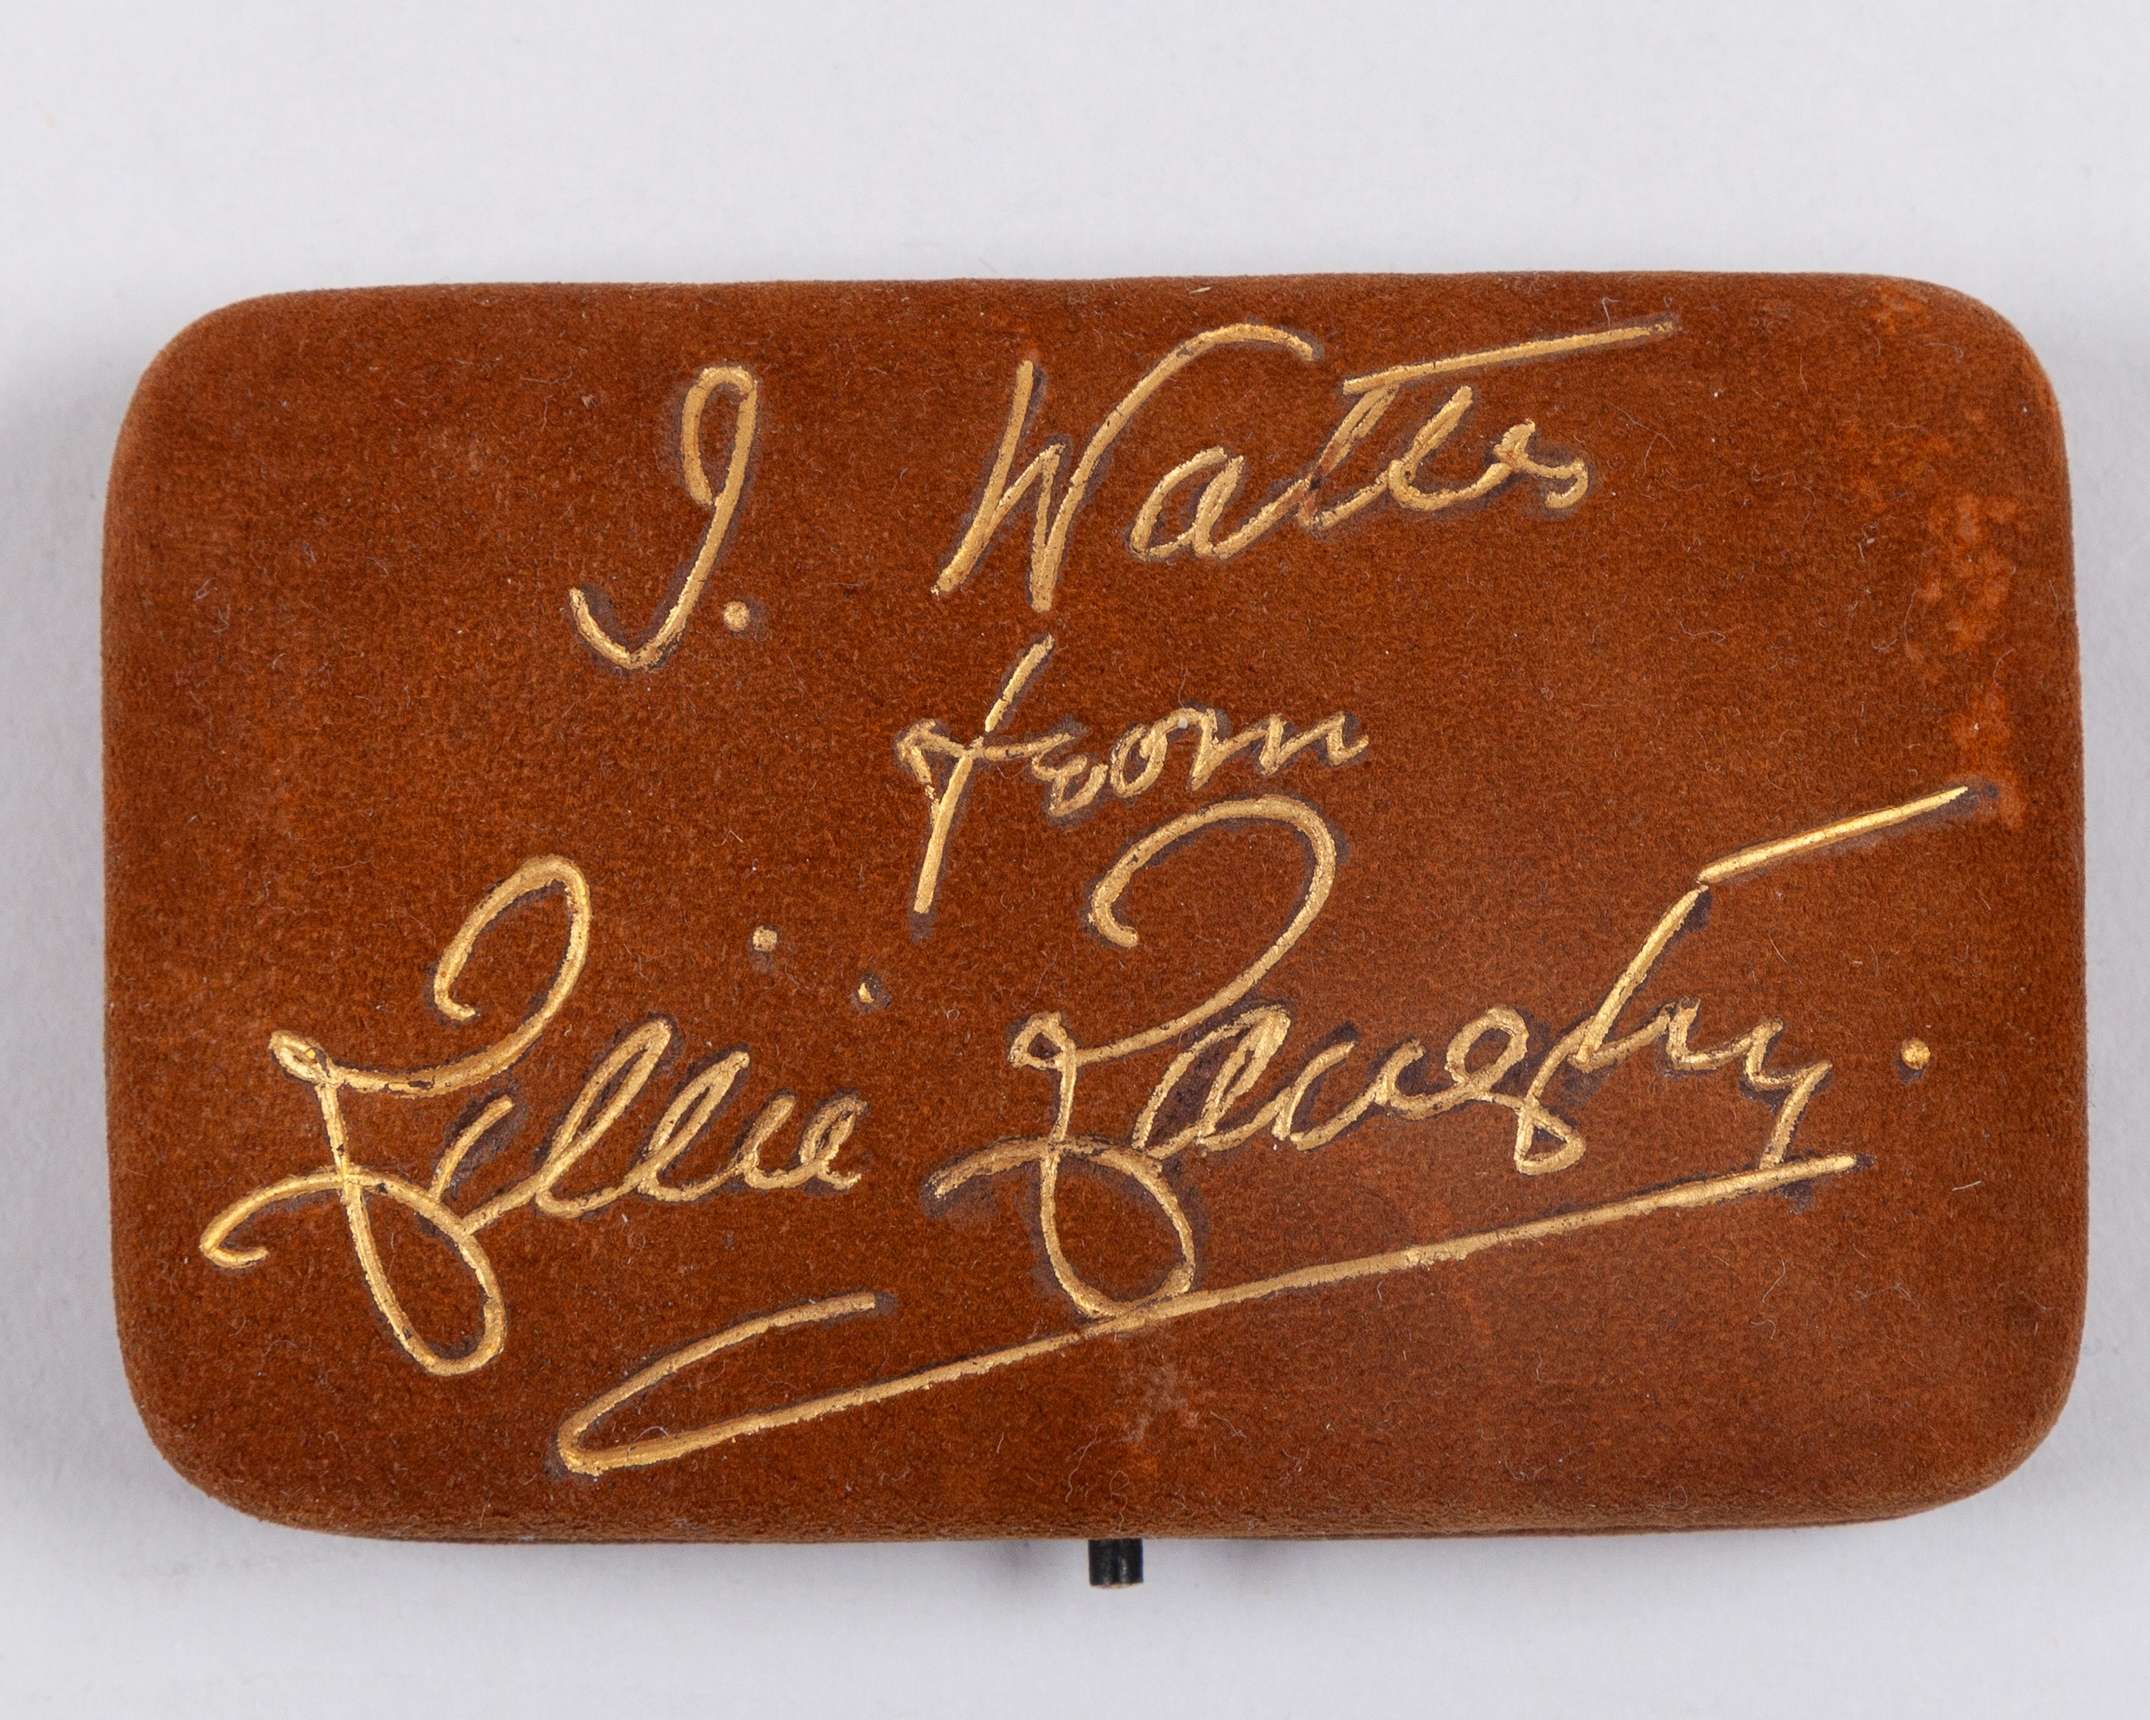 J. Watts
from
Lillie Langtry.